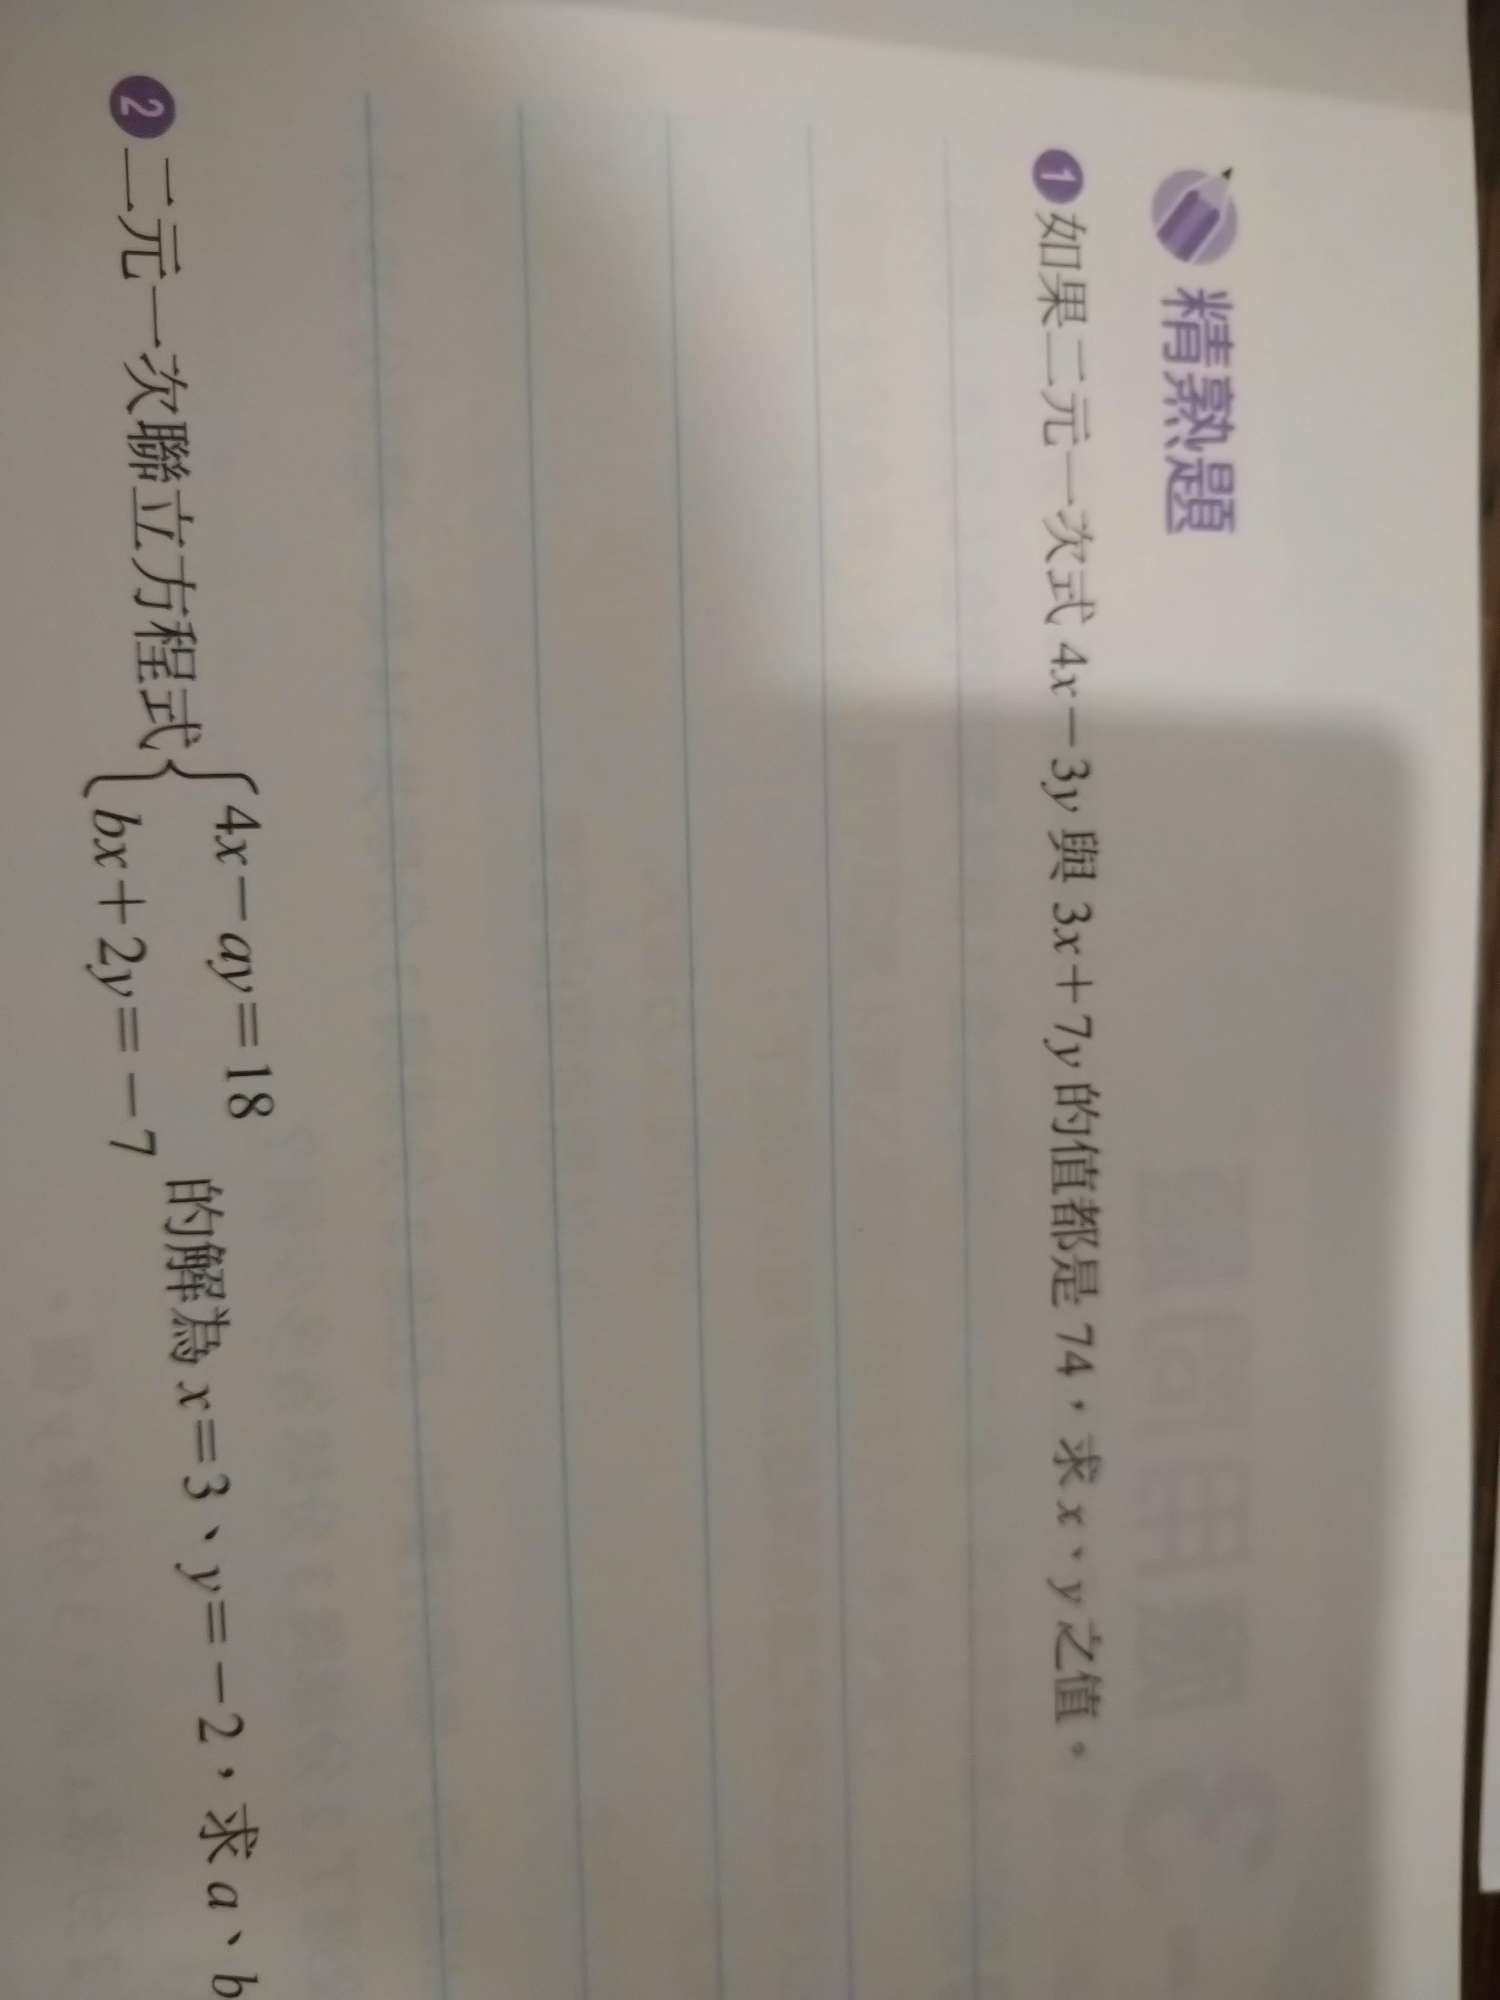 精熟題
1 如果二元一次式 4x－3y 與 3x＋7y 的值都是 74，求 x、y 之值。
2 二元一次聯立方程式{4x－ay＝18
bx＋2y＝－7 的解為 x＝3、y＝－2，求 a、b